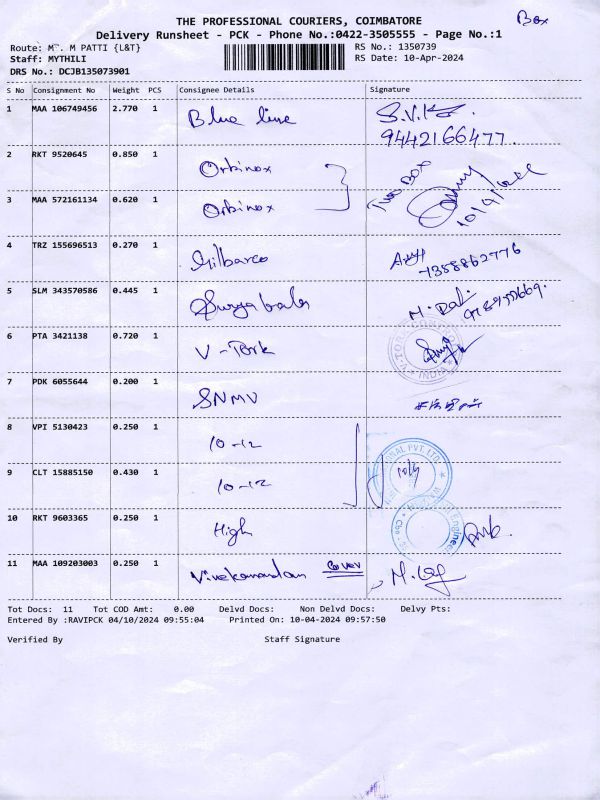 THE PROFESSIONAL COURIERS, COIMBATORE
Box
Delivery Runsheet - PCK - Phone No.:0422-3505555 - Page No.:1
Route: M . M PATTI {L&T}
RS No.: 1350739
Staff: MYTHILI
RS Date: 10-Apr-2024
DRS No.: DCJB135073901
S No Consignment No Weight PCS Consignee Details Signature
1 MAA 106749456 2.770 1 Blue line S.V.K
9442166477
2 RKT 9520645 0.850 1 Orbinox Two Box
3 MAA 572161134 0.620 1 Orbinox
4 TRZ 155696513 0.270 1 Gilbarco
7358862776
5 SLM 343570586 0.445 1 Suryabala
6 PTA 3421138 0.720 1 V-Tork
INDIA
7 PDK 6055644 0.200 1 SNMV
8 VPI 5130423 0.250 1 10-12
PVT. LTD.
9 CLT 15885150 0.430 1 10-12
10 RKT 9603365 0.250 1 High
Engineer
11 MAA 109203003 0.250 1 Vivekanandan Cover
Tot Docs: 11 Tot COD Amt: 0.00 Delvd Docs: Non Delvd Docs: Delvy Pts:
Entered By :RAVIPCK 04/10/2024 09:55:04 Printed On: 10-04-2024 09:57:50
Verified By Staff Signature